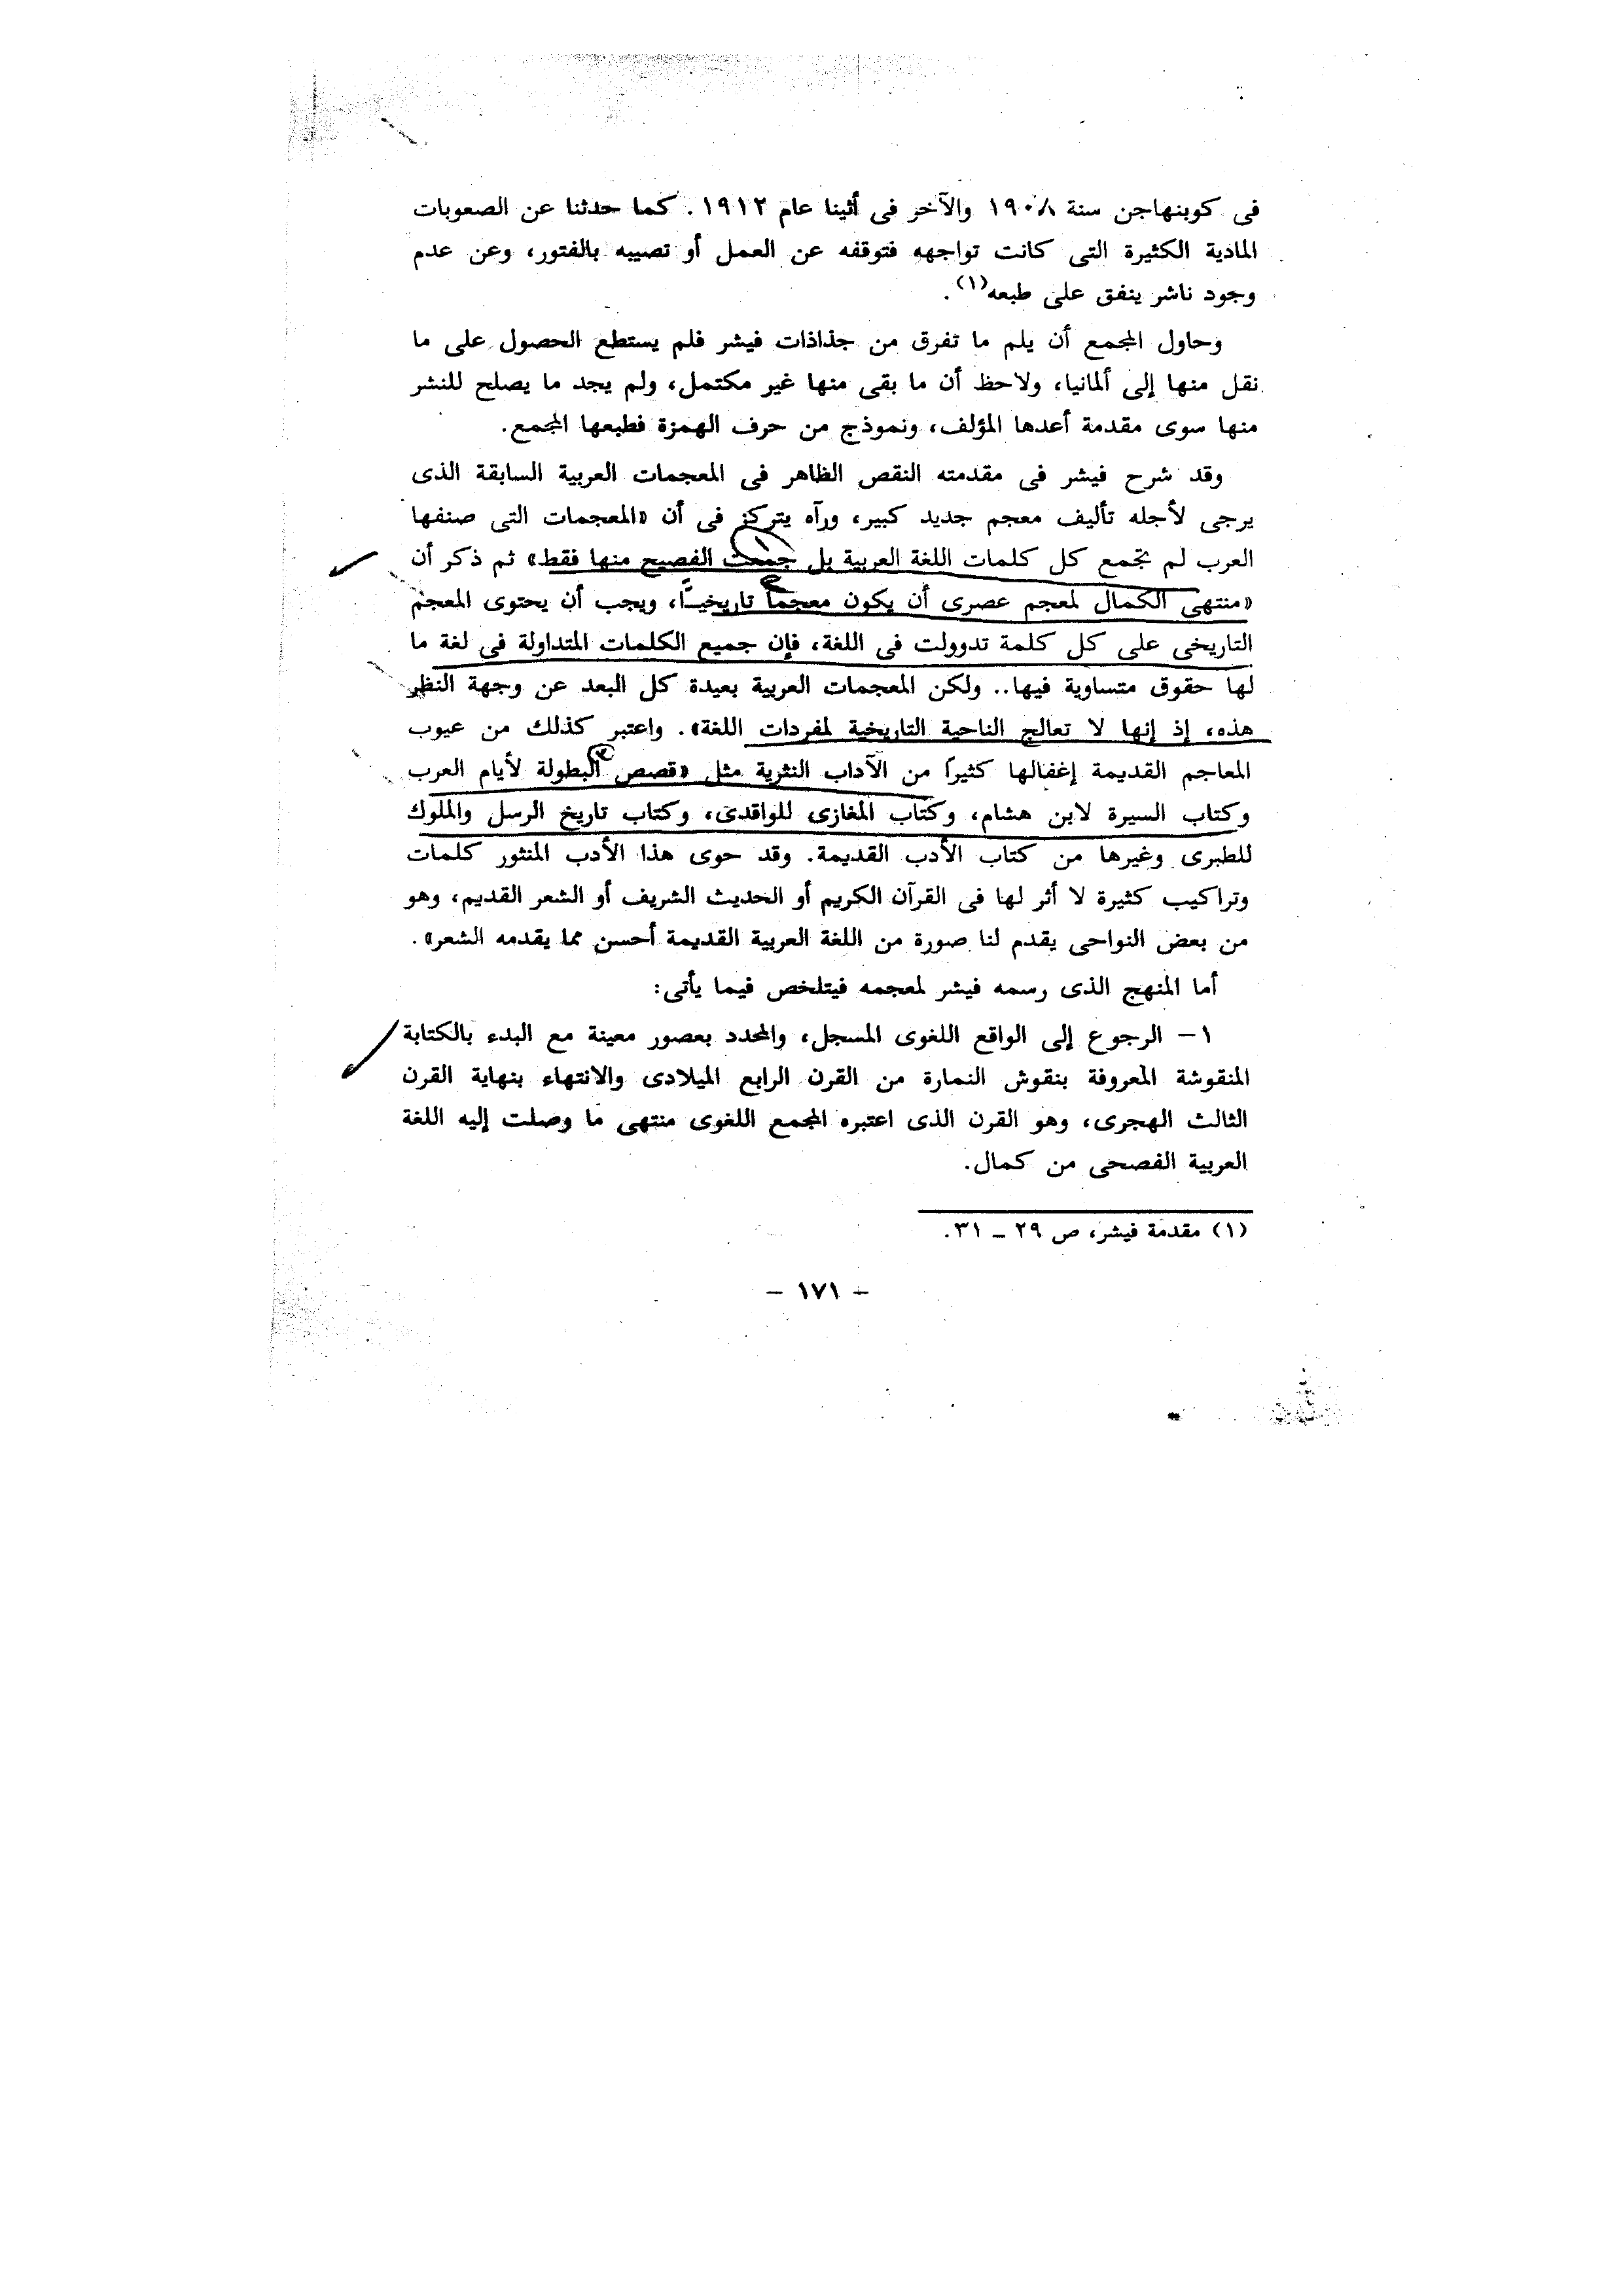 فى كوبنهاجن سنة ١٩٠٨ والآخر فى أثينا عام ١٩١٢. كما حدثنا عن الصعوبات
المادية الكثيرة التى كانت تواجهه فتوقفه عن العمل أو تصيبه بالفتور، وعن عدم
وجود ناشر ينفق على طبعه(١).
وحاول المجمع أن يلم ما تفرق من جذاذات فيشر فلم يستطع الحصول على ما
نقل منها إلى ألمانيا، ولاحظ أن ما بقى منها غير مكتمل، ولم يجد ما يصلح للنشر
منها سوى مقدمة أعدها المؤلف، ونموذج من حرف الهمزة فطبعها المجمع.
وقد شرح فيشر فى مقدمته النقص الظاهر فى المعجمات العربية السابقة الذى
يرجى لأجله تأليف معجم جديد كبير، ورآه يتركز فى أن «المعجمات التى صنفها
العرب لم تجمع كل كلمات اللغة العربية بل جمعت الفصيح منها فقط» ثم ذكر أن
«منتهى الكمال لمعجم عصرى أن يكون معجماً تاريخيًّا، ويجب أن يحتوى المعجم
التاريخى على كل كلمة تدوولت فى اللغة، فإن جميع الكلمات المتداولة فى لغة ما
لها حقوق متساوية فيها.. ولكن المعجمات العربية بعيدة كل البعد عن وجهة النظر
هذه، إذ إنها لا تعالج الناحية التاريخية لمفردات اللغة». واعتبر كذلك من عيوب
المعاجم القديمة إغفالها كثيرًا من الآداب النثرية مثل «قصص البطولة لأيام العرب
وكتاب السيرة لابن هشام، وكتاب المغازى للواقدى، وكتاب تاريخ الرسل والملوك
للطبرى وغيرها من كتاب الأدب القديمة. وقد حوى هذا الأدب المنثور كلمات
وتراكيب كثيرة لا أثر لها فى القرآن الكريم أو الحديث الشريف أو الشعر القديم، وهو
من بعض النواحى يقدم لنا صورة من اللغة العربية القديمة أحسن مما يقدمه الشعر».
أما المنهج الذى رسمه فيشر لمعجمه فيتلخص فيما يأتى:
١- الرجوع إلى الواقع اللغوى المسجل، والمحدد بعصور معينة مع البدء بالكتابة
المنقوشة المعروفة بنقوش النمارة من القرن الرابع الميلادى والانتهاء بنهاية القرن
الثالث الهجرى، وهو القرن الذى اعتبره المجمع اللغوى منتهى ما وصلت إليه اللغة
العربية الفصحى من كمال.
(١) مقدمة فيشر، ص ٢٩ - ٣١.
- ١٧١ -